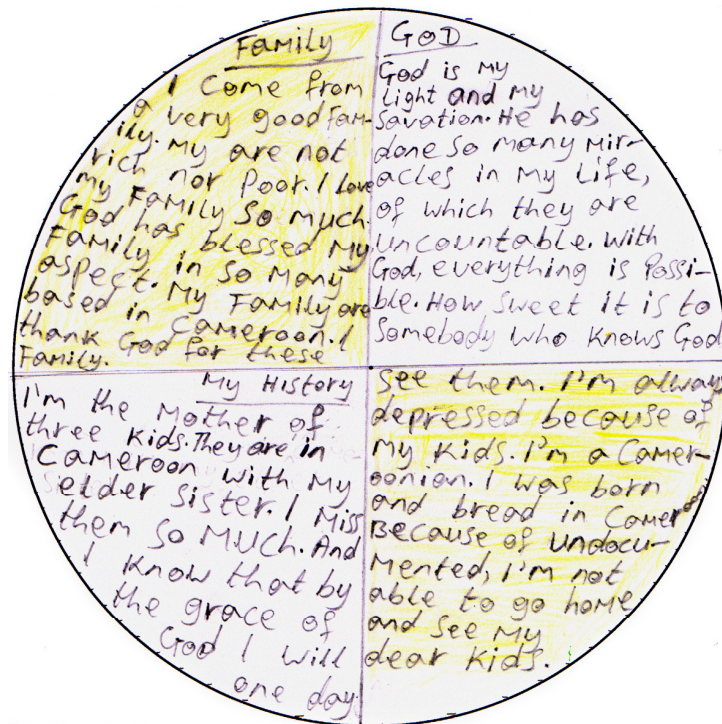 Family
I come from
a very good Fam-
ily. My are not
rich nor poor. I love
my Family so much.
God has blessed my
Family in so many
aspect. My Family are
based in Cameroon. I
thank God for these
Family.
GOD
God is my
Light and my
Savation. He has
done so many mir-
acles in my life,
of which they are
uncountable. With
God, everything is Possi-
ble. How sweet it is to
Somebody who knows God
My History
I'm the mother of
three kids. They are in
Cameroon with my
elder sister. I miss
them so much. And
I know that by
the grace of
God I will
one day
see them. I'm always
depressed because of
my kids. I'm a Camer-
oonian. I was born
and bread in Cameroon.
Because of undocu-
mented, I'm not
able to go home
and see my
dear kids.